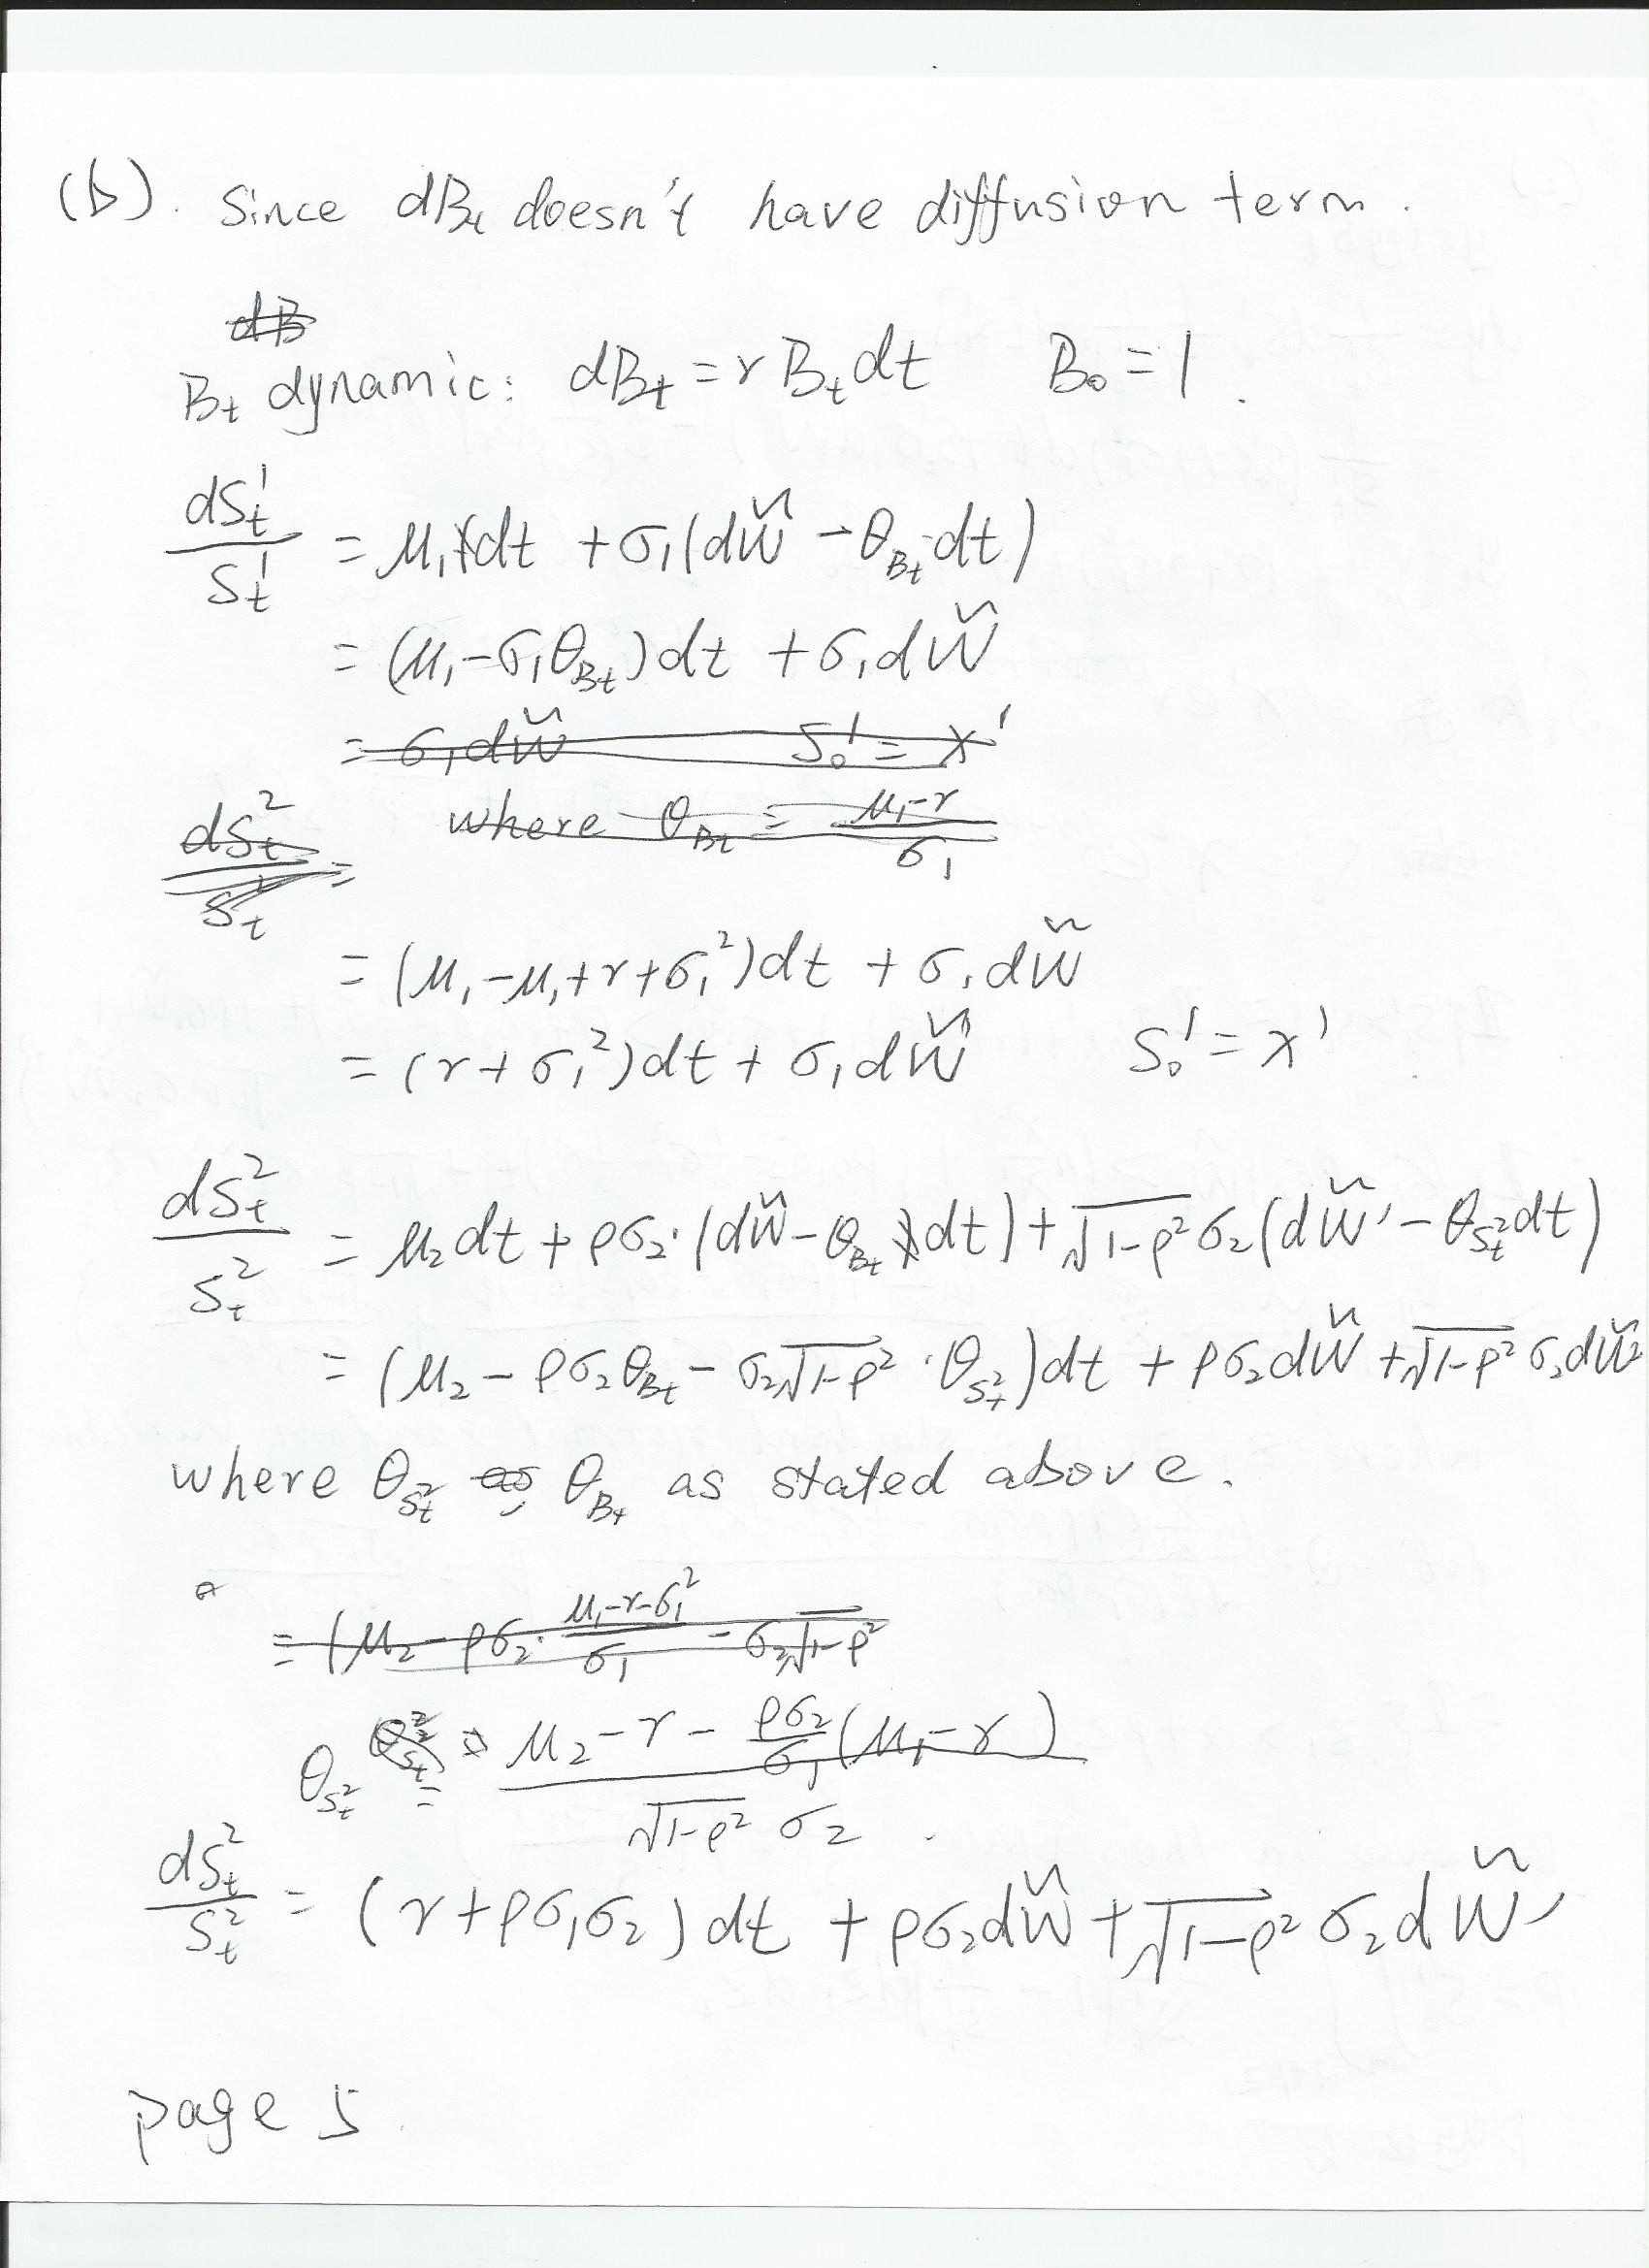 (b). Since dB_t doesn't have diffusion term.
dB
B_t dynamic: dB_t = r B_t dt B_0 = 1.
dS_t^1 / S_t^1 = μ_1 dt + σ_1 (dW̃ - θ_{B_t} dt)
= (μ_1 - σ_1 θ_{B_t}) dt + σ_1 dW̃
= σ_1 dW̃ S_0^1 = x^1
where θ_{B_t} = (μ_1 - r) / σ_1
dS_t^2 / S_t^2 =
= (μ_1 - μ_1 + r + σ_1^2) dt + σ_1 dW̃
= (r + σ_1^2) dt + σ_1 dW̃ S_0^1 = x^1
dS_t^2 / S_t^2 = μ_2 dt + ρσ_2 · (dW̃ - θ_{B_t} dt) + √(1-ρ^2) σ_2 (dW̃' - θ_{S_t^2} dt)
= (μ_2 - ρσ_2 θ_{B_t} - σ_2 √(1-ρ^2) · θ_{S_t^2}) dt + ρσ_2 dW̃ + √(1-ρ^2) σ_2 dW̃'
where θ_{S_t^2}, θ_{B_t} as stated above.
= (μ_2 - ρσ_2 · (μ_1 - r - σ_1^2) / σ_1 - σ_2 √(1-ρ^2)
θ_{S_t^2} = (μ_2 - r - (ρσ_2 / σ_1)(μ_1 - r)) / (√(1-ρ^2) σ_2).
dS_t^2 / S_t^2 = (r + ρσ_1σ_2) dt + ρσ_2 dW̃ + √(1-ρ^2) σ_2 dW̃'
page 5.